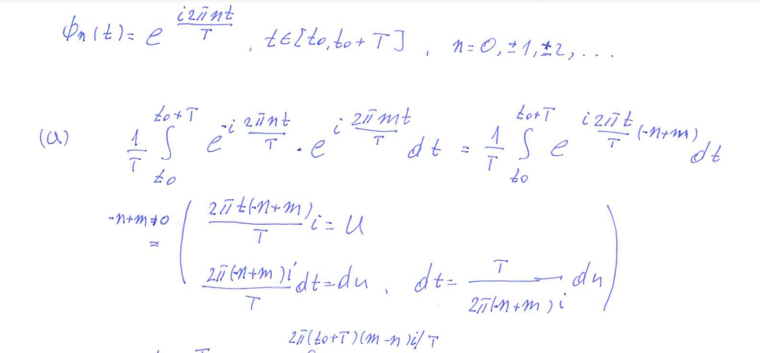 ϕn(t) = e^{i2πnt/T}, t∈[t0, t0+T], n=0, ±1, ±2, ...
(a) 1/T ∫_{t0}^{t0+T} e^{-i 2πnt/T} · e^{i 2πmt/T} dt = 1/T ∫_{t0}^{t0+T} e^{i2πt/T (-n+m)} dt
-n+m≠0 = ( 2πt(-n+m)/T i = u
2π(-n+m)i/T dt = du, dt = T/(2π(-n+m)i) du )
2π(t0+T)(m-n)i/T